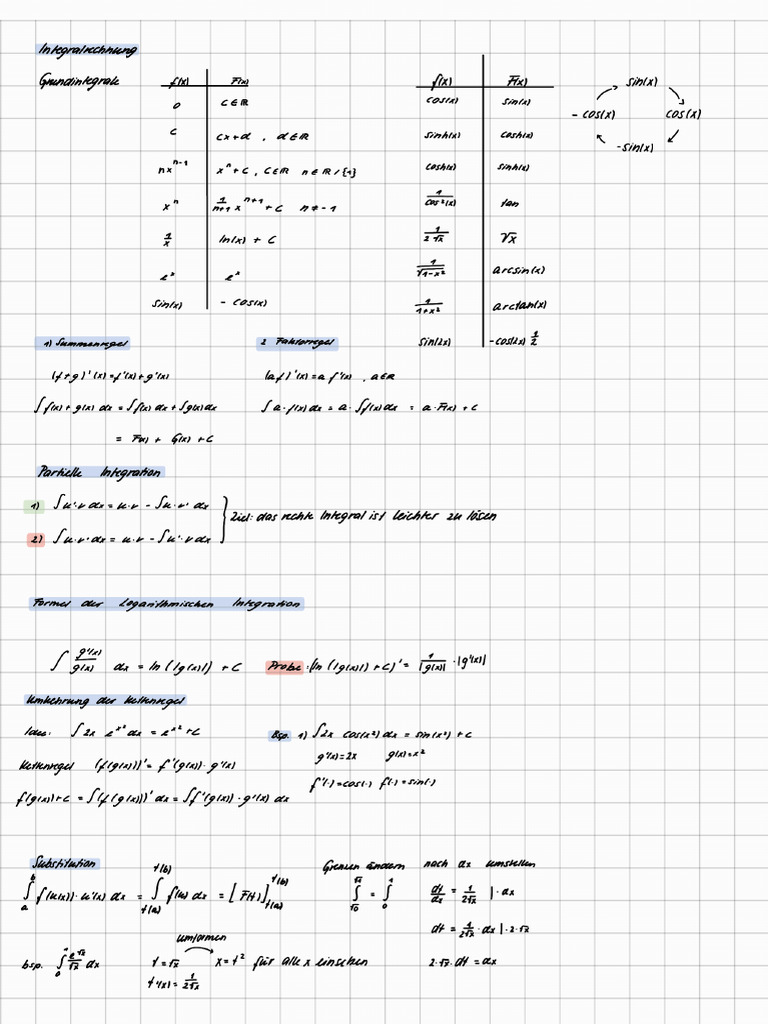 Integralrechnung
Grundintegrale
f(x) F(x)
0 C∈ℝ
C cx+d , d∈ℝ
nxⁿ⁻¹ xⁿ+C, C∈ℝ n∈ℝ/{1}
xⁿ 1/(n+1) xⁿ⁺¹ + C n≠-1
1/x ln(x) + C
eˣ eˣ
sin(x) - cos(x)
f(x) F(x)
cos(x) sin(x)
sinh(x) cosh(x)
cosh(x) sinh(x)
1/cos²(x) tan
1/(2√x) √x
1/√(1-x²) arcsin(x)
1/(1+x²) arctan(x)
sin(2x) -cos(2x) 1/2
sin(x)
- cos(x) cos(x)
-sin(x)
1) Summenregel
(f+g)'(x)=f'(x)+g'(x)
∫f(x)+g(x) dx = ∫f(x) dx + ∫g(x) dx
= F(x) + G(x) + C
2 Faktorregel
(af)'(x)=a f'(x) , a∈ℝ
∫a·f(x) dx = a·∫f(x) dx = a·F(x) + C
Partielle Integration
1) ∫u'·v dx = u·v - ∫u·v' dx
2) ∫u·v' dx = u·v - ∫u'·v dx
Ziel: das rechte Integral ist leichter zu lösen
Formel der Logarithmischen Integration
∫ g'(x)/g(x) dx = ln(|g(x)|) + C
Probe: (ln(|g(x)|)+C)' = 1/|g(x)| · |g'(x)|
Umkehrung der Kettenregel
Idee: ∫2x e^x² dx = e^x² + C
Kettenregel (f(g(x)))' = f'(g(x))·g'(x)
f(g(x))+C = ∫(f(g(x)))' dx = ∫f'(g(x))·g'(x) dx
Bsp. 1) ∫2x cos(x²) dx = sin(x²) + C
g'(x)=2x g(x)=x²
f'(·)=cos(·) f(·)=sin(·)
Substitution
∫ₐᵇ f(u(x))·u'(x) dx = ∫_t(a)^t(b) f(u) dx = [F(t)]_t(a)^t(b)
umformen
bsp. ∫₀¹ e^√x/√x dx t=√x x=t² für alle x einsetzen
t'(x)=1/(2√x)
Grenzen ändern
∫_√0^√1 = ∫₀¹
nach dx umstellen
dt/dx = 1/(2√x) |·dx
dt = 1/(2√x)·dx |·2·√x
2·√x·dt = dx